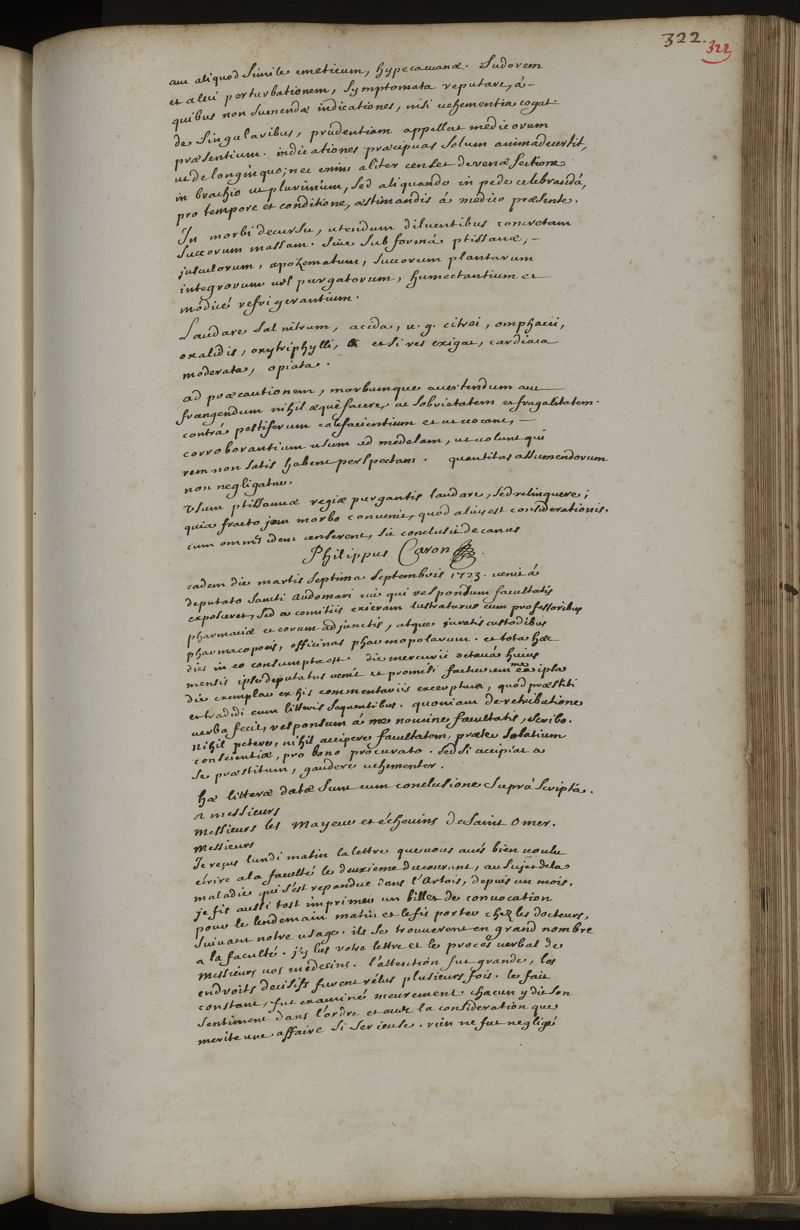 322.
322
aut aliquod simile emeticum, hypecauanæ. Sudorem
et alvi perturbationem, symptomata reputare, à-
quibus non sumendæ indicationes, nisi vehementia cogat.
de singularibus, prudentiam appellat medicorum
præsentium. indicationes præcipuas solum animadvertit,
ut de longinquo; nec enim aliter censet de venæ sectione
in brachio ut plurimum, sed aliquando in pede celebranda,
pro tempore et conditione, æstimandis à medico præsente.
In morbi decursu, utendum diluentibus concretam
succorum massam. sive sub forma ptissanæ, -
jusculorum, apozematum, succorum plantarum
integrorum vel purgatorum, humectantium et
modicé refrigerantium.
Laudare sal nitrum, acida, u. g. citrei, omphacii,
oxalidis, oxytriphylli, & et si res exigat, cardiaca
moderata, opiata.
ad præcautionem, morbumque avertendum aut
frangendum nihil æquè facere, ac sobrietatem et frugalitatem.
contrà pestiferum calefacientium et ut vocant, -
corroborantium usum ad medelam, ut volunt qui
rem non satis habent perspectam. quantitas assumendorum
non negligatur.
Usum ptissannæ regiæ purgantis laudare, sed relinquere;
quia fracto jam morbo convenit, quod alius est considerationis.
cum omnes idem censerent, sic conclusit decanus
Philippus Caron
eadem die martis septima septembris 1723. venit à
deputato sancti Audomari cui qui responsum facultatis
exposceret, sed a comitiis exieram lustraturus cum professoribus
pharmaciæ et eorum adjunctis, atque juratis custodibus
pharmacopoeis, officinas pharmopolarum. et tota hæc
dies in eo consumpta est. die mercurii octavâ huius
mensis ipse deputatus venit et promisi facturum me eâ ipsa
die exempla ex his commentariis excerptum, quod præstiti
et tradidi cum litteris sequentibus. quoniam de retributione
verba fecit, responsum à me nomine facultatis, scribo.
Nihil petere, nihil accipere facultatem, præter solatium
conscientiæ, pro bono procurato. sed si accipiat a
se præstitum, gaudere vehementer.
hæ litteræ datæ sunt cum conclusione suprà scriptâ.
A messieurs
Messieurs les Mayeur et échevins de Saint Omer.
Messieurs
Je reçus lundi matin la lettre que vous avés bien voulu
écrire a la faculté le deuxieme du courant, au sujet de la
maladie qui s'est repandue dans l'Artois, depuis un mois.
je fis aussi tost imprimer un billet de convocation
pour le lendemain matin et le fis porter chez les docteurs,
suivant notre usage. ils se trouverent en grand nombre
a la faculté. j'y lus votre lettre et le procés verbal de
Messieurs vos médecins. l'attention fut grande, les
endroits decisifs furent rélus plusieurs fois. le fait
constant, fut examiné meurement. chacun y dit son
sentiment dans l'ordre et avec la consideration que
merite une affaire si serieuse. rien ne fut negligé